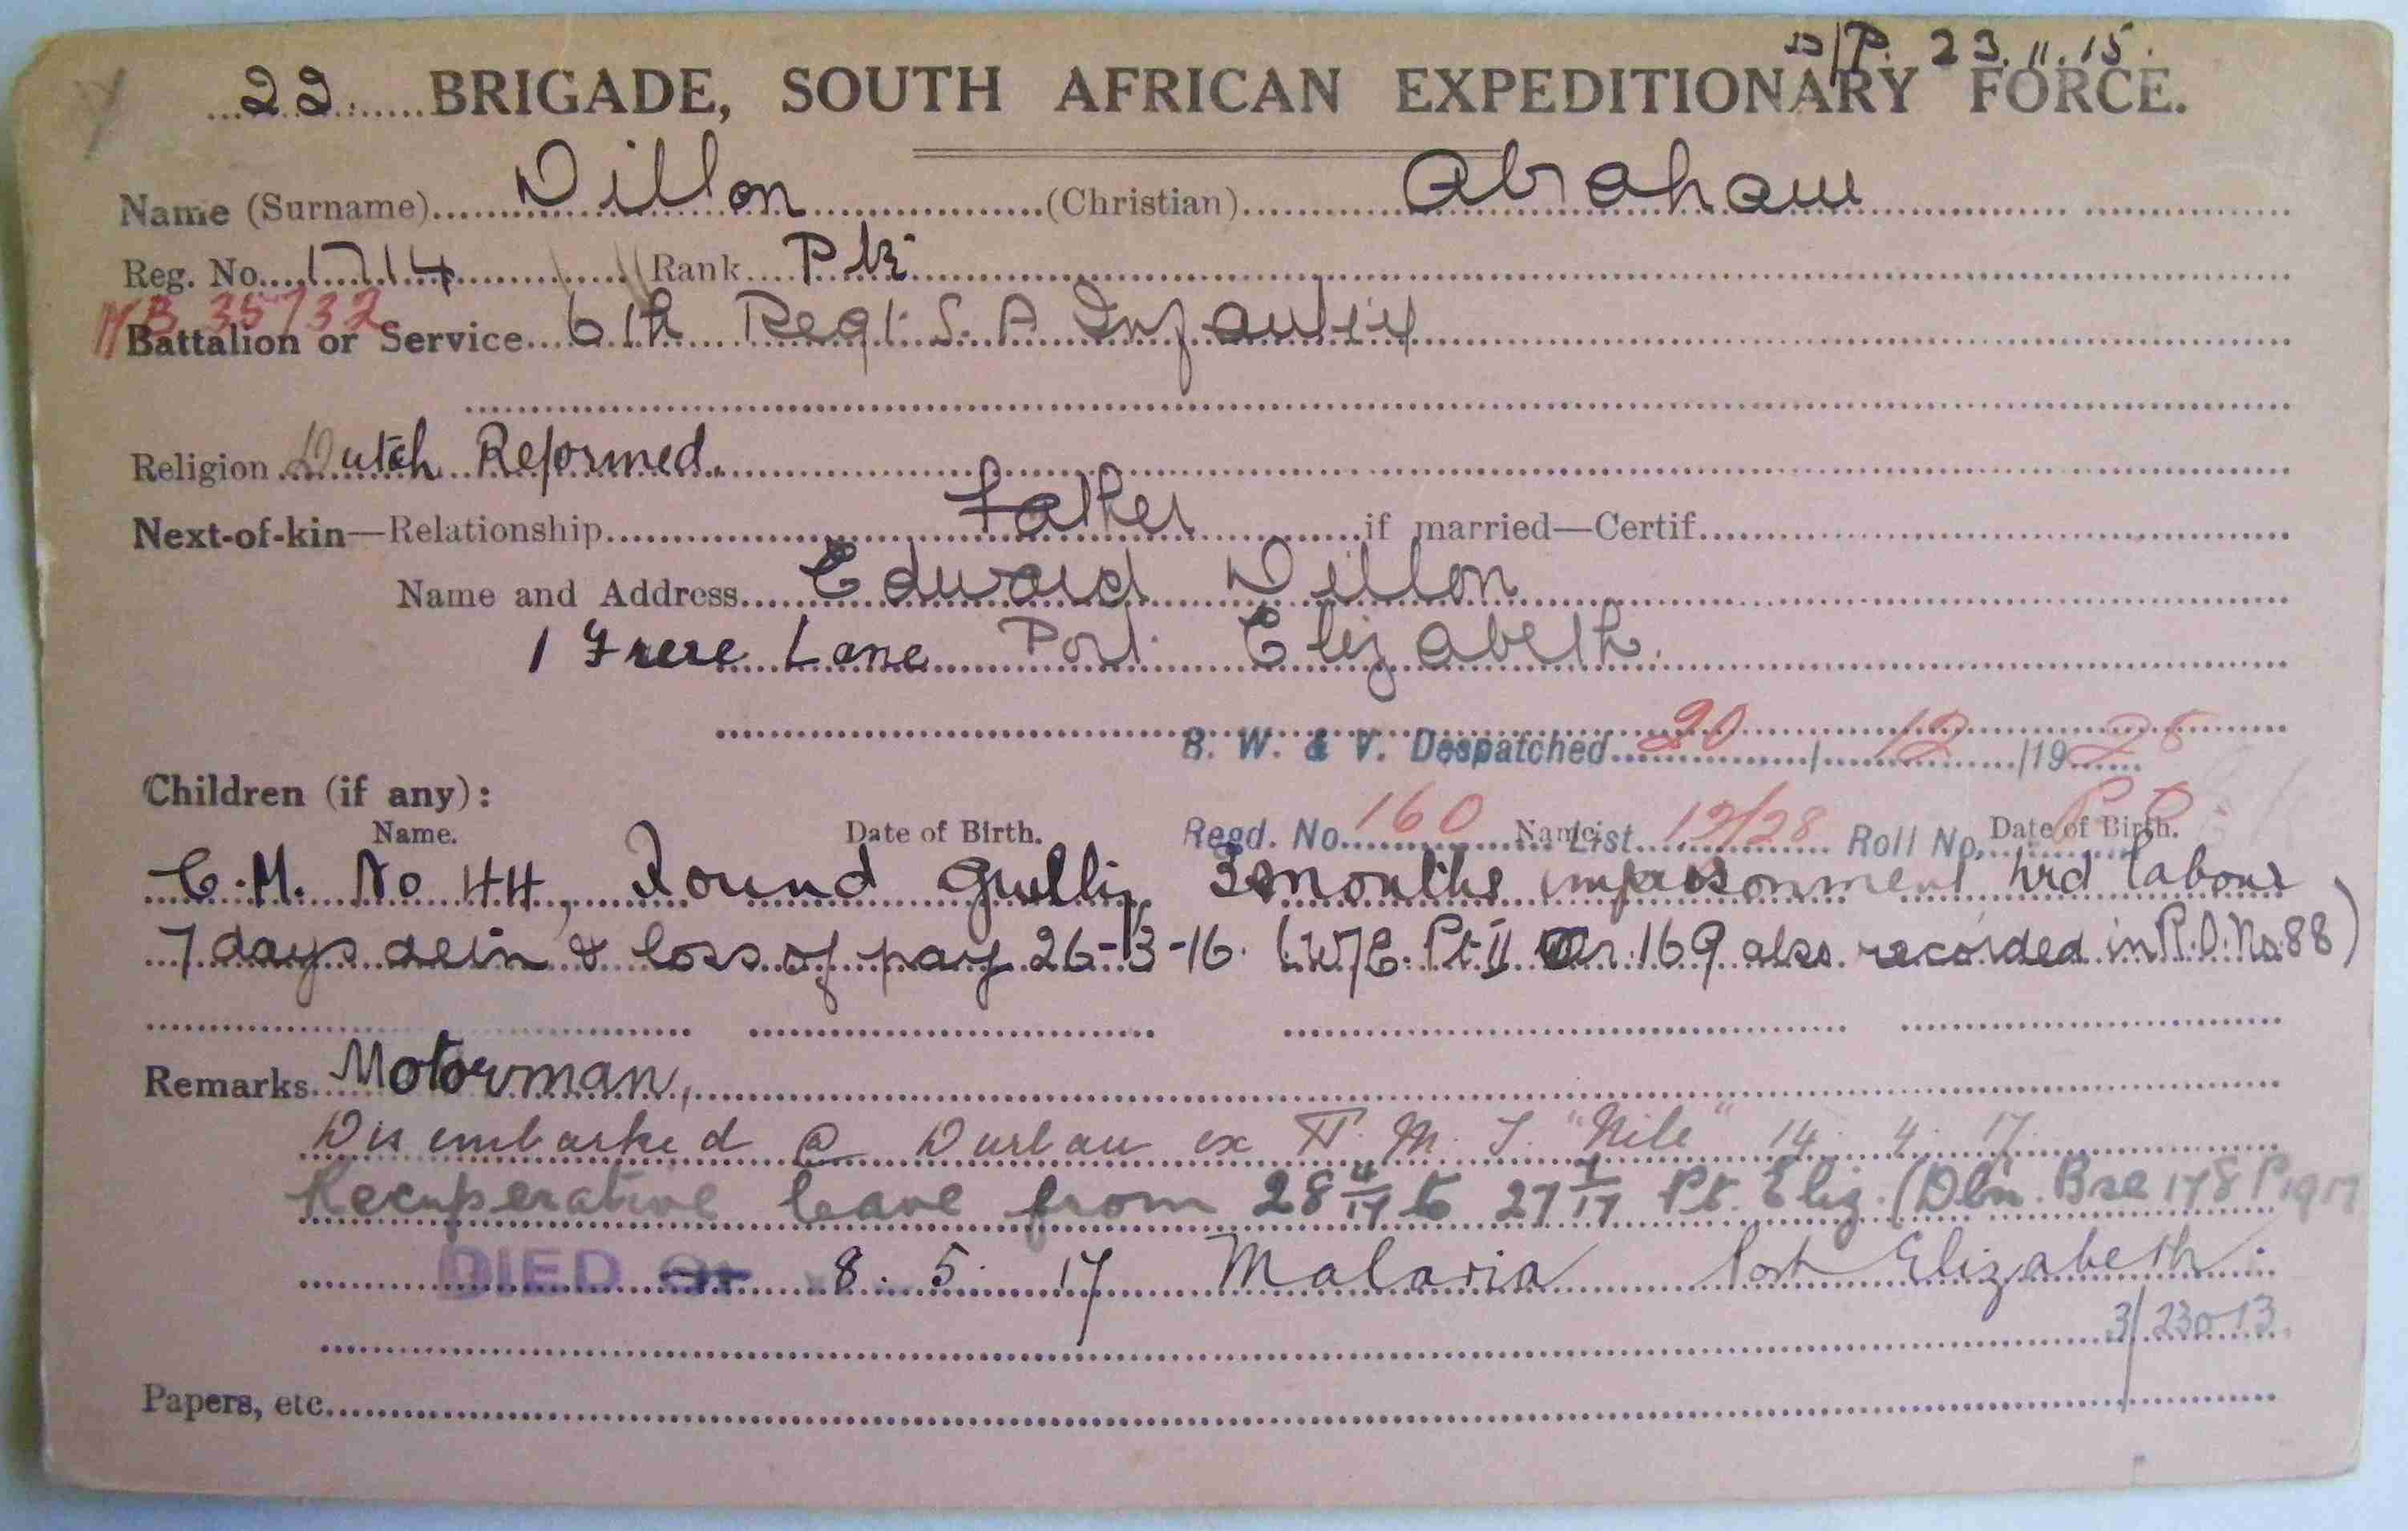 D/P. 23.11.15.
22 BRIGADE, SOUTH AFRICAN EXPEDITIONARY FORCE.
Name (Surname) Dillon (Christian) Abraham
Reg. No. 1714 Rank Pte
NB 35732
Battalion or Service 6th Regt S. A Infantry
Religion Dutch Reformed.
Next-of-kin—Relationship Father if married—Certif.
Name and Address Edward Dillon
1 Frere Lane Port Elizabeth.
B. W. & V. Despatched 20/12/1928
Children (if any):
Regd. No. 160 List 12/28 Roll No.
Name. Date of Birth. Name. Date of Birth.
C.M. No 44, Found Guilty 3 months imprisonment hrd labour
7 days detn & loss of pay 26-3-16. (W/E. Pt II Or. 169 also recorded in R.O. No. 88)
Remarks Motorman,
Disembarked @ Durban ex H. M. T. "Nile" 14. 4. 17.
Recuperative leave from 28 4/17 to 27 7/17 Pt. Eliz. (Dbn. Bse 178 P 1917
DIED 8. 5. 17 Malaria Port Elizabeth.
3/23013.
Papers, etc.